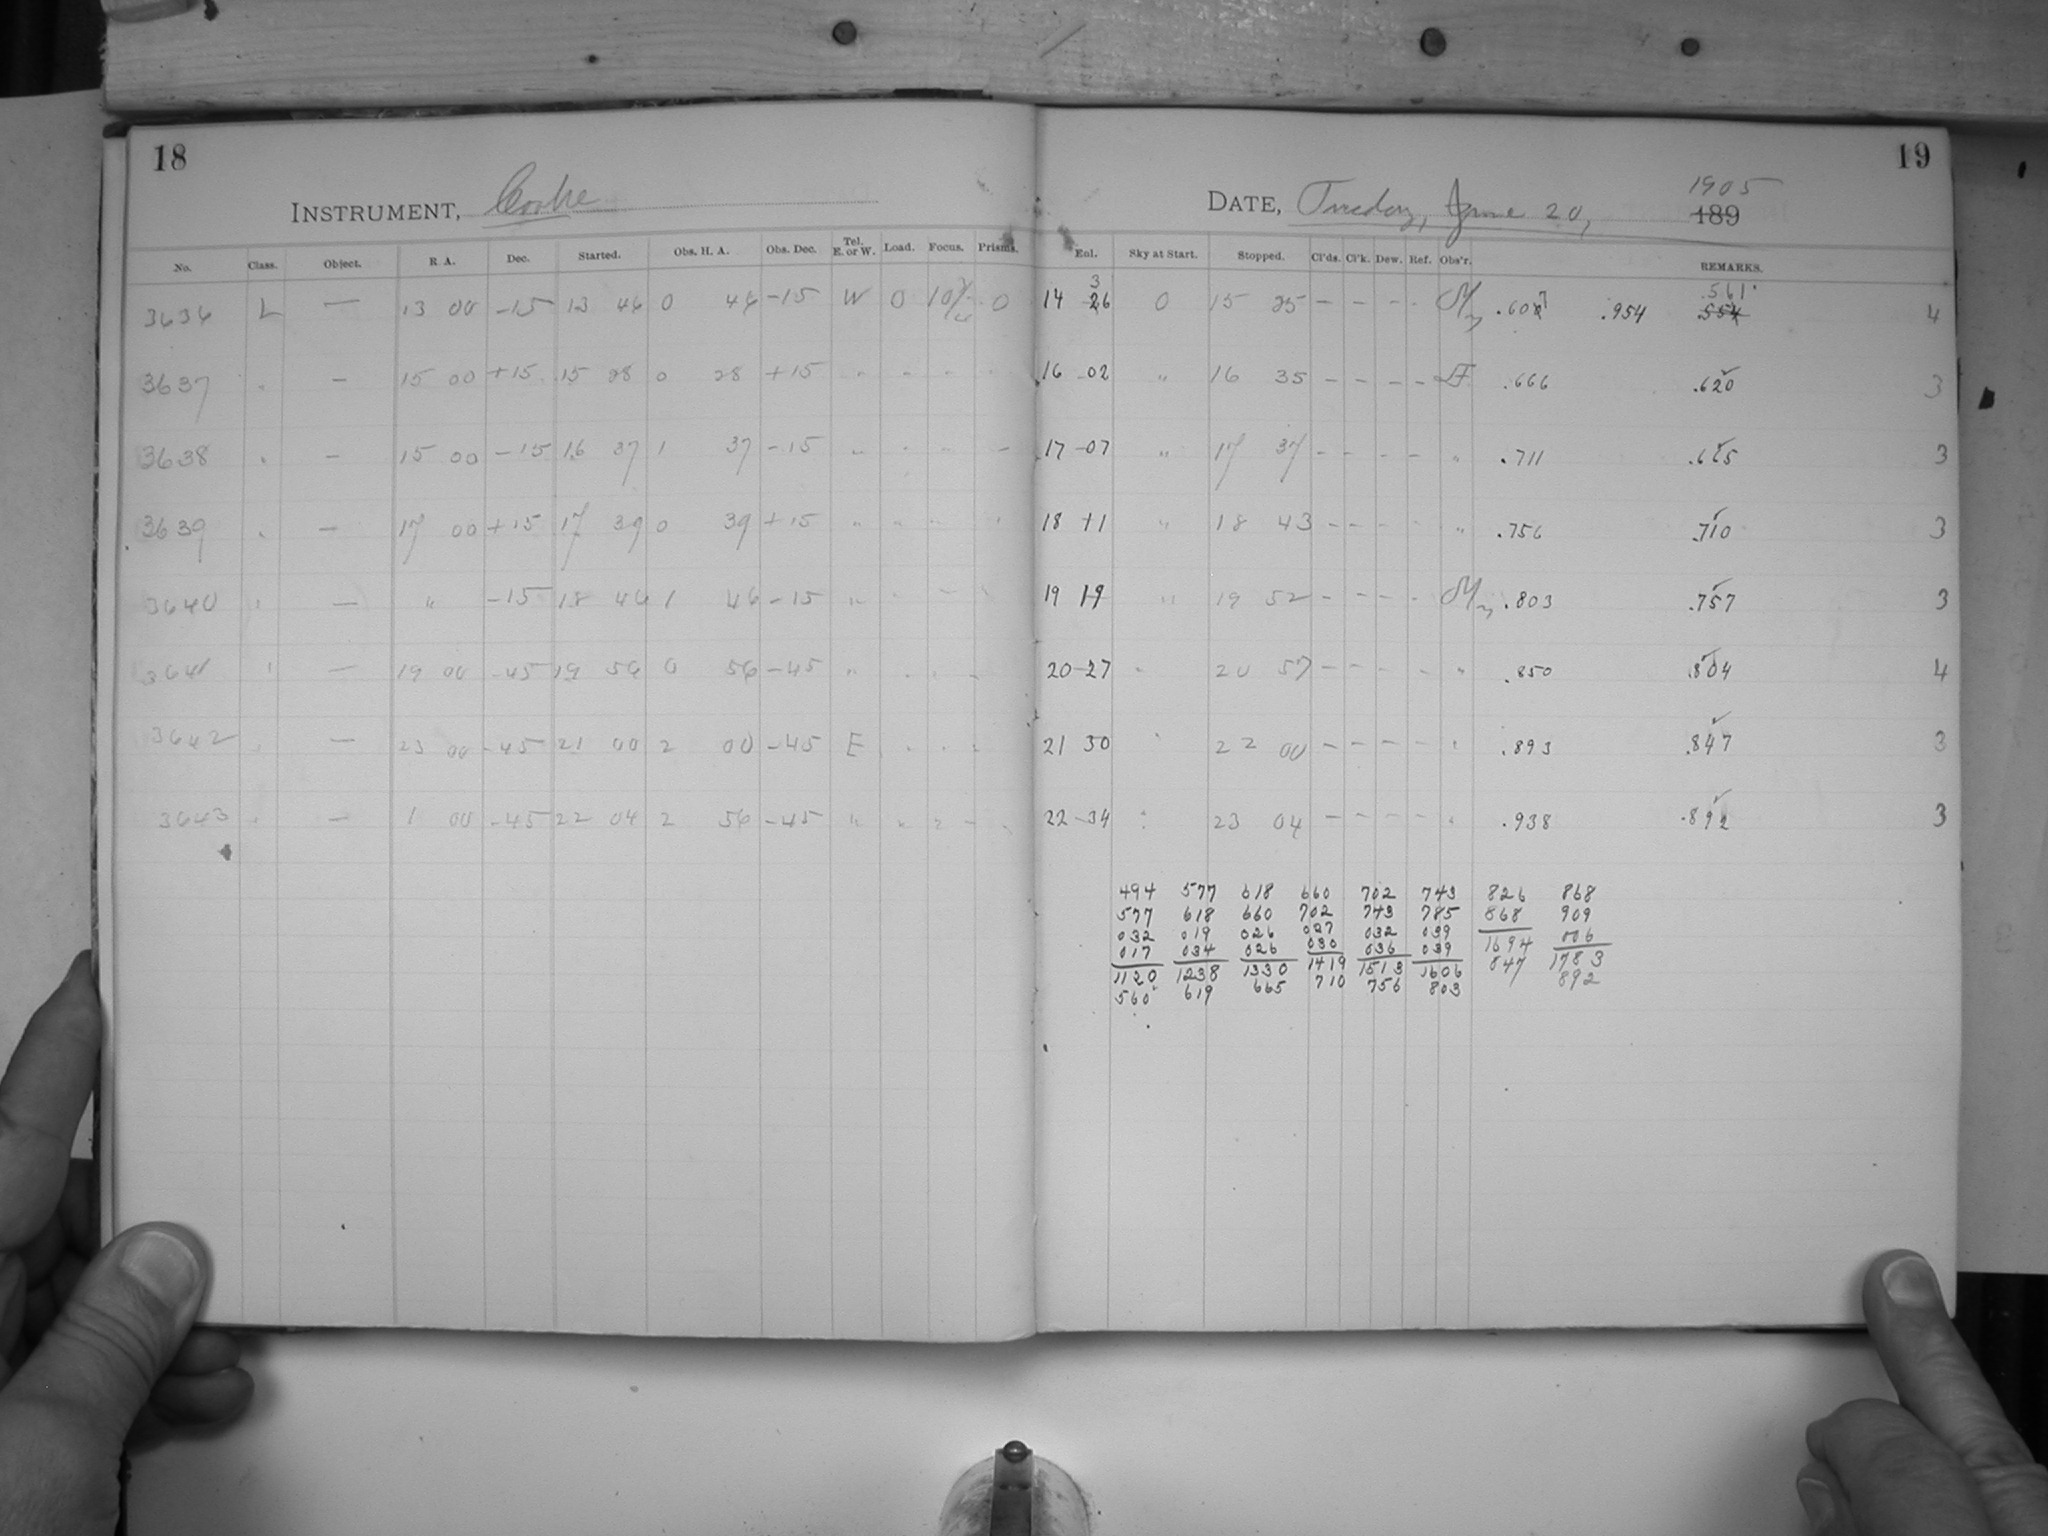 18
INSTRUMENT, Cooke
No. Class. Object. R A. Dec. Started. Obs. H. A. Obs. Dec. Tel. E. or W. Load. Focus. Prisms.
3636 L — 13 00 -15 13 46 0 46 -15 W 0 0
3637 " — 15 00 +15 15 28 0 28 +15 " " " "
3638 " — 15 00 -15 16 37 1 37 -15 " " " –
3639 " — 17 00 +15 17 39 0 39 +15 " " " "
3640 " — " -15 18 46 1 46 -15 " " " "
3641 " — 19 00 -45 19 56 0 56 -45 " " " "
3642 " — 23 00 -45 21 00 2 00 -45 E " " "
3643 " — 1 00 -45 22 04 2 56 -45 " " " "
19
DATE, Tuesday, June 20, 1905
189
Exl. Sky at Start. Stopped. Cl'ds. Cl'k. Dew. Ref. Obs'r. REMARKS.
14 36 0 15 25 – – – – M .607 .954 .561 .554 4
16 -02 " 16 35 – – – – F .666 .620 3
17 -07 " 17 37 – – – – " .711 .665 3
18 +1 " 18 43 – – – – " .756 .710 3
19 19 " 19 52 – – – – M .803 .757 3
20 -27 " 20 57 – – – – " .850 .804 4
21 30 " 22 00 – – – – " .893 .847 3
22 -34 " 23 04 – – – – " .938 .892 3
494 577 618 660 702 743 826 868
577 618 660 702 743 785 868 909
032 019 026 027 032 039 1694 006
017 034 026 030 036 039 847 1783
1120 1238 1330 1419 1513 1606 892
560 619 665 710 756 803